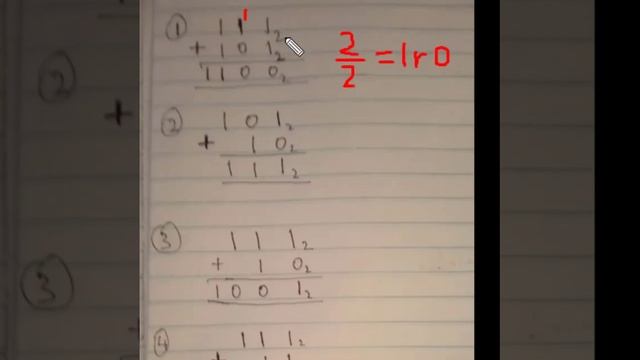 1
① 1 1 1₂
+ 1 0 1₂
1 1 0 0₂
2/2 = 1 r 0
② 1 0 1₂
+ 1 0₂
1 1 1₂
③ 1 1 1₂
+ 1 0₂
1 0 0 1₂
④ 1 1 1₂
②
+
③